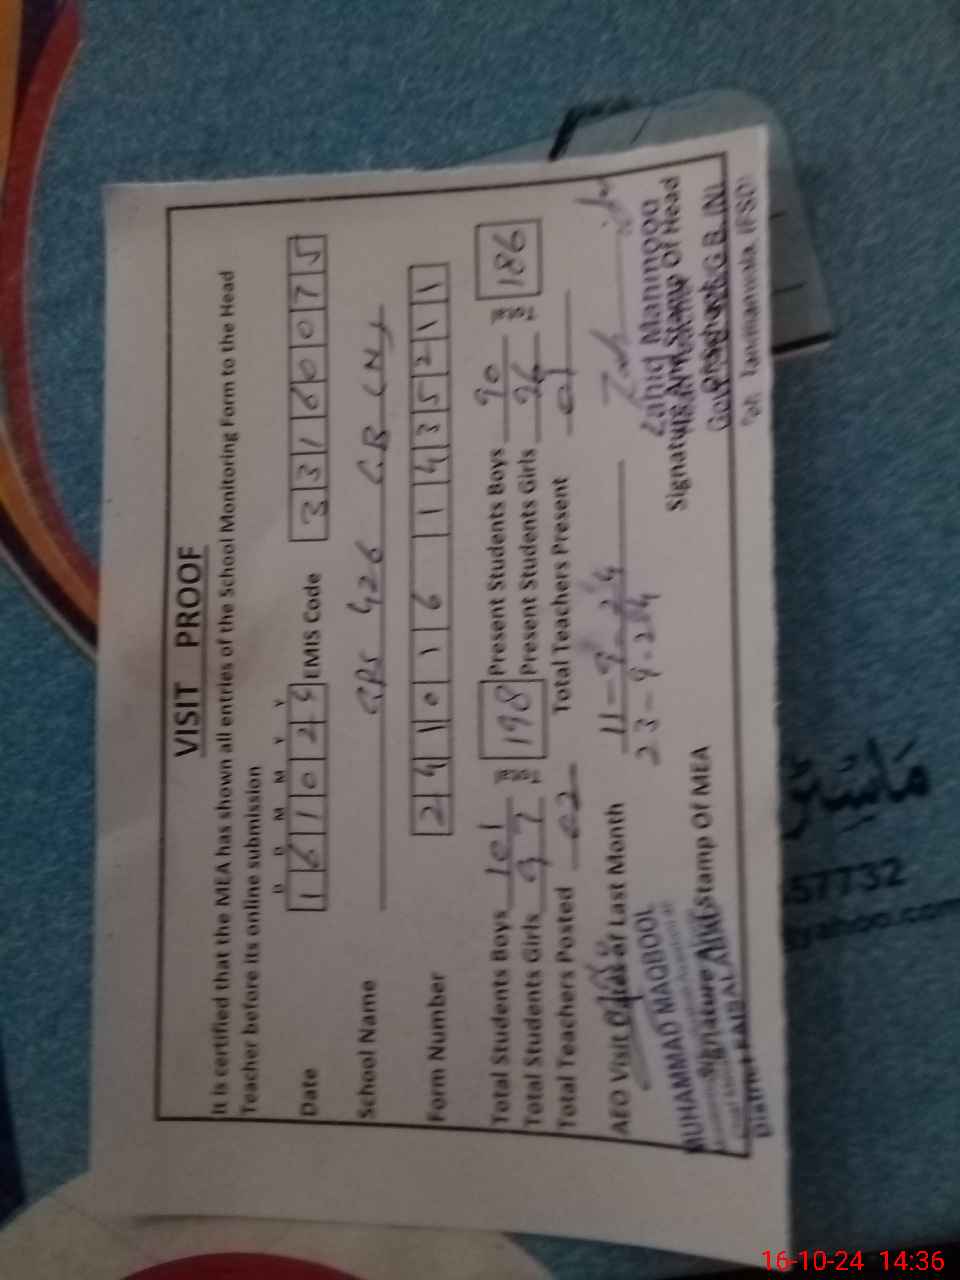 VISIT PROOF
It is certified that the MEA has shown all entries of the School Monitoring Form to the Head
Teacher before its online submission
D D M M Y Y
Date 1 6 1 0 2 4 EMIS Code 3 3 1 6 0 0 7 5
School Name GPS 426 G.B (N)
Form Number 2 4 1 0 1 6 1 4 3 5 2 1 1
Total Students Boys 101 198 Present Students Boys 90 186
Total Students Girls 97 Present Students Girls 96
Total Teachers Posted 02 Total Teachers Present 01
AEO Visit of Last Month 11-9-24
23-9-24
MUHAMMAD MAQBOOL Zahid Mahmood
Signature And Stamp Of MEA Signature And Stamp Of Head
District FAISALABAD
Teh. Tandlianwala (FSD)
57732
yahoo.com
16-10-24 14:36